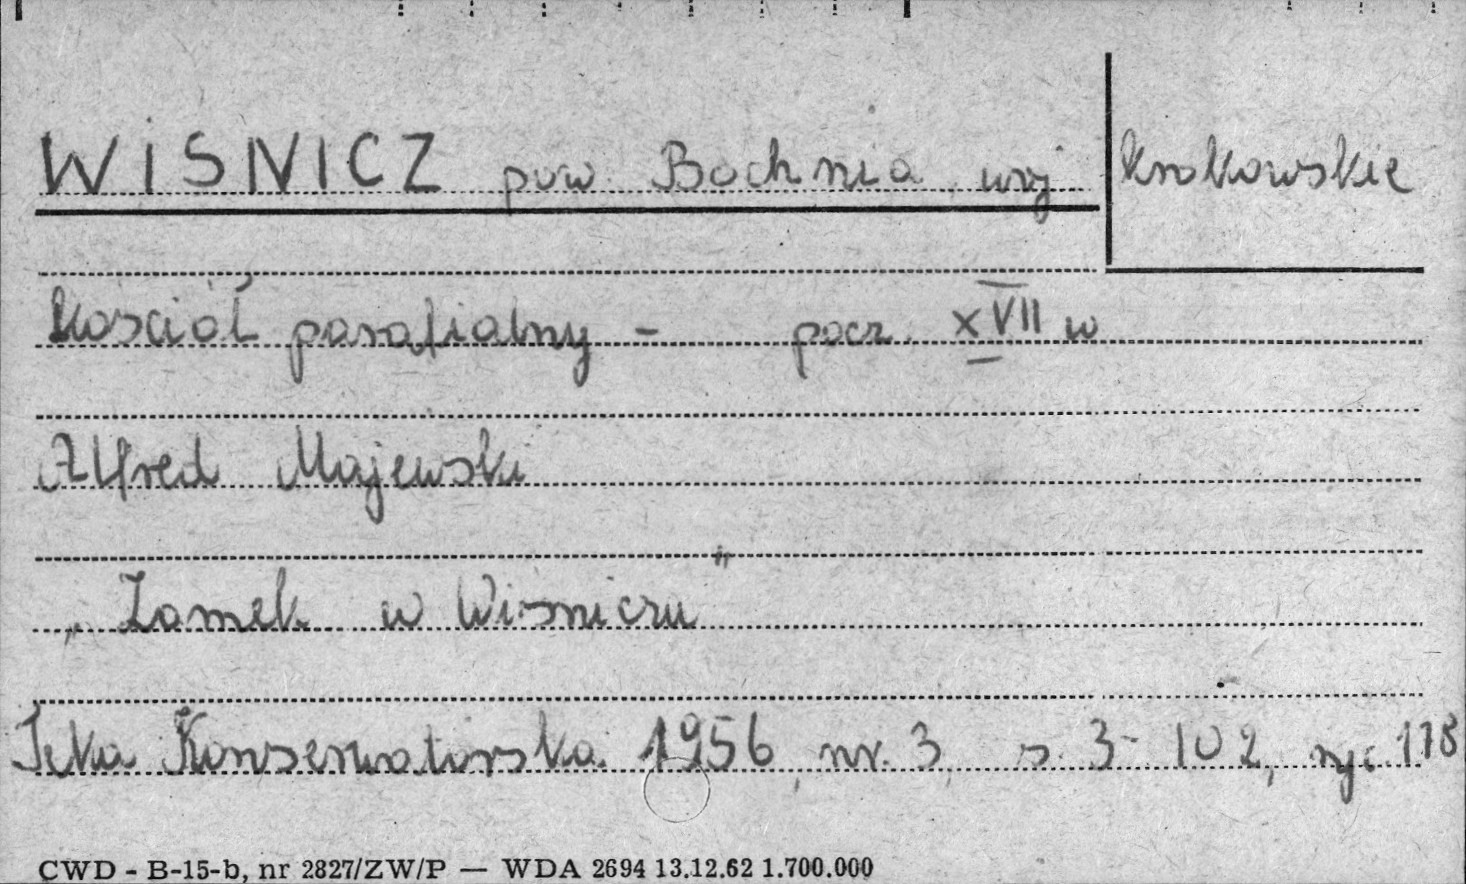 WISNICZ pow. Bochnia, woj krakowskie
Kościół parafialny - pocz. XVII w
Alfred Majewski
„Zamek w Wiśniczu"
Teka Konserwatorska 1956, nr. 3, s. 3-102, ryc 118
CWD - B-15-b, nr 2827/ZW/P — WDA 2694 13.12.62 1.700.000